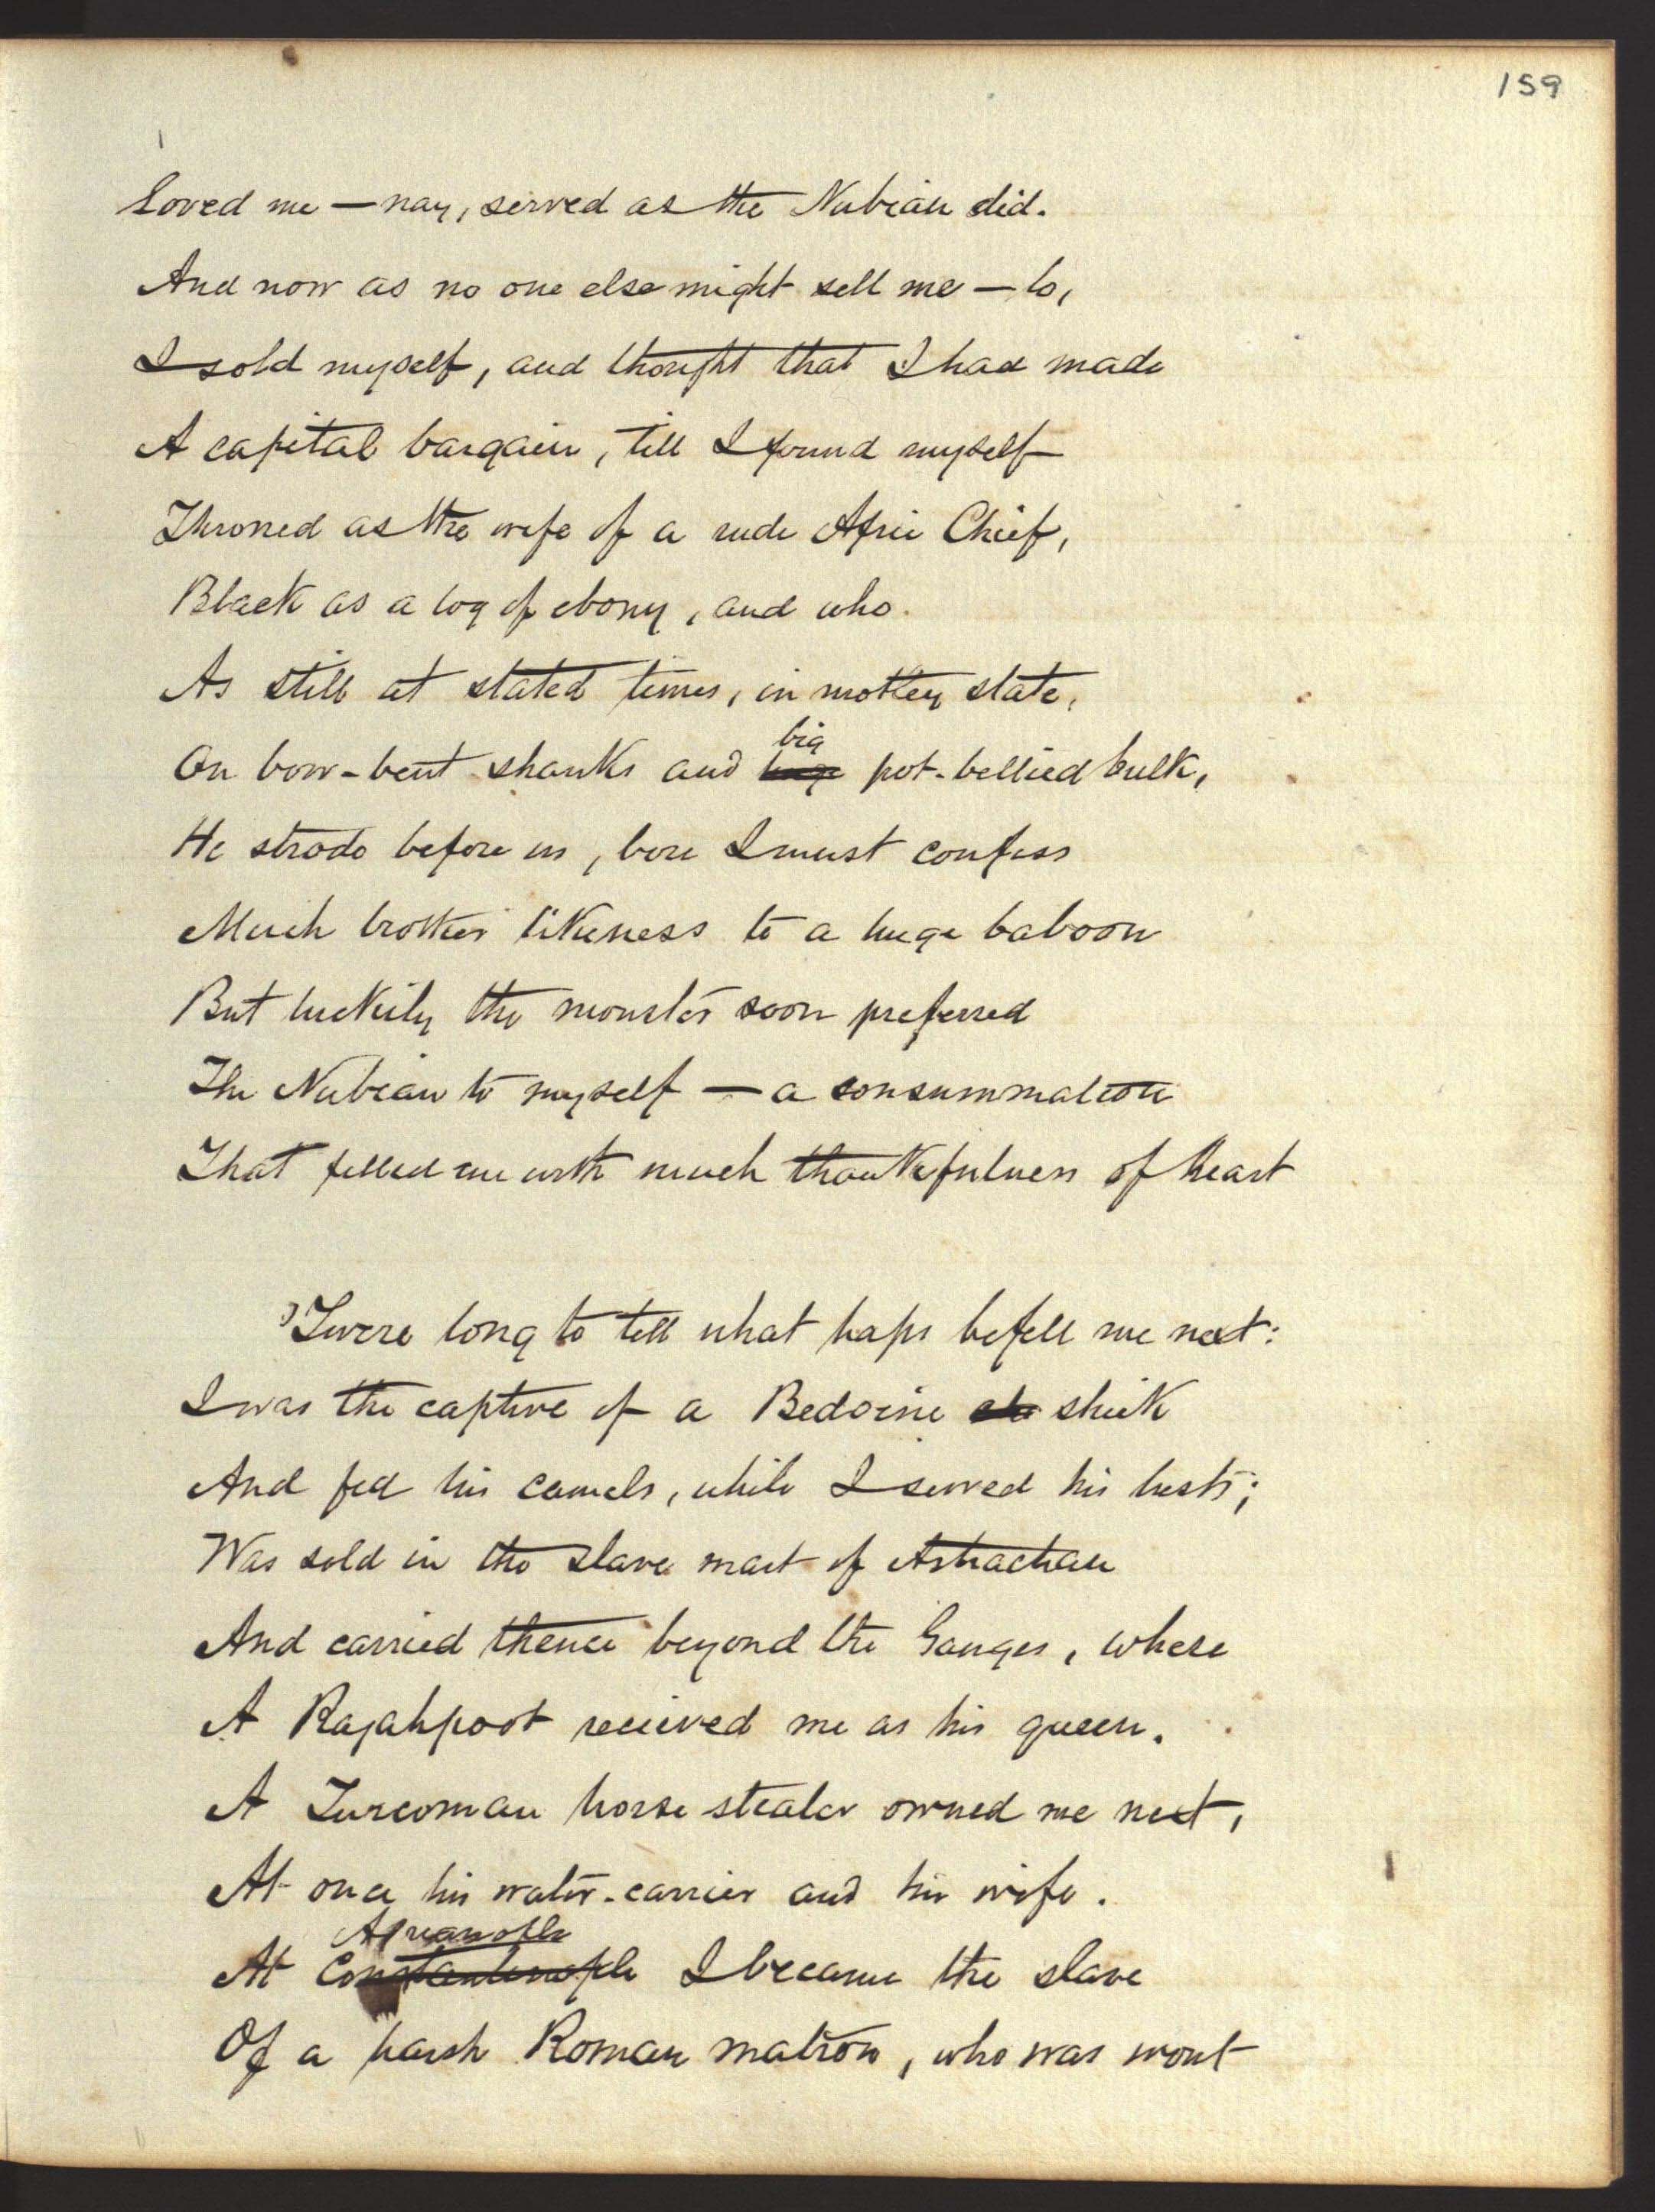 159
Loved me — nay, served as the Nubian did.
And now as no one else might sell me — lo,
I sold myself, and thought that I had made
A capital bargain, till I found myself
Throned as the wife of a rude Afric Chief,
Black as a log of ebony, and who
As still at stated times, in motley state,
big
On bow-bent shanks and huge pot-bellied bulk,
He strode before us, bore I must confess
Much brother likeness to a huge baboon
But luckily the monster soon preferred
The Nubian to myself — a consummation
That filled me with much thankfulness of heart
'Twere long to tell what haps befell me next:
I was the captive of a Bedoine sheik
And fed his camels, while I served his hests;
Was sold in the slave mart of Astrachan
And carried thence beyond the Ganges, where
A Rajahpoot recieved me as his queen.
A Turcoman horse stealer owned me next,
At once his water-carrier and his wife.
At Constantinople I became the slave
Of a harsh Roman matron, who was wont